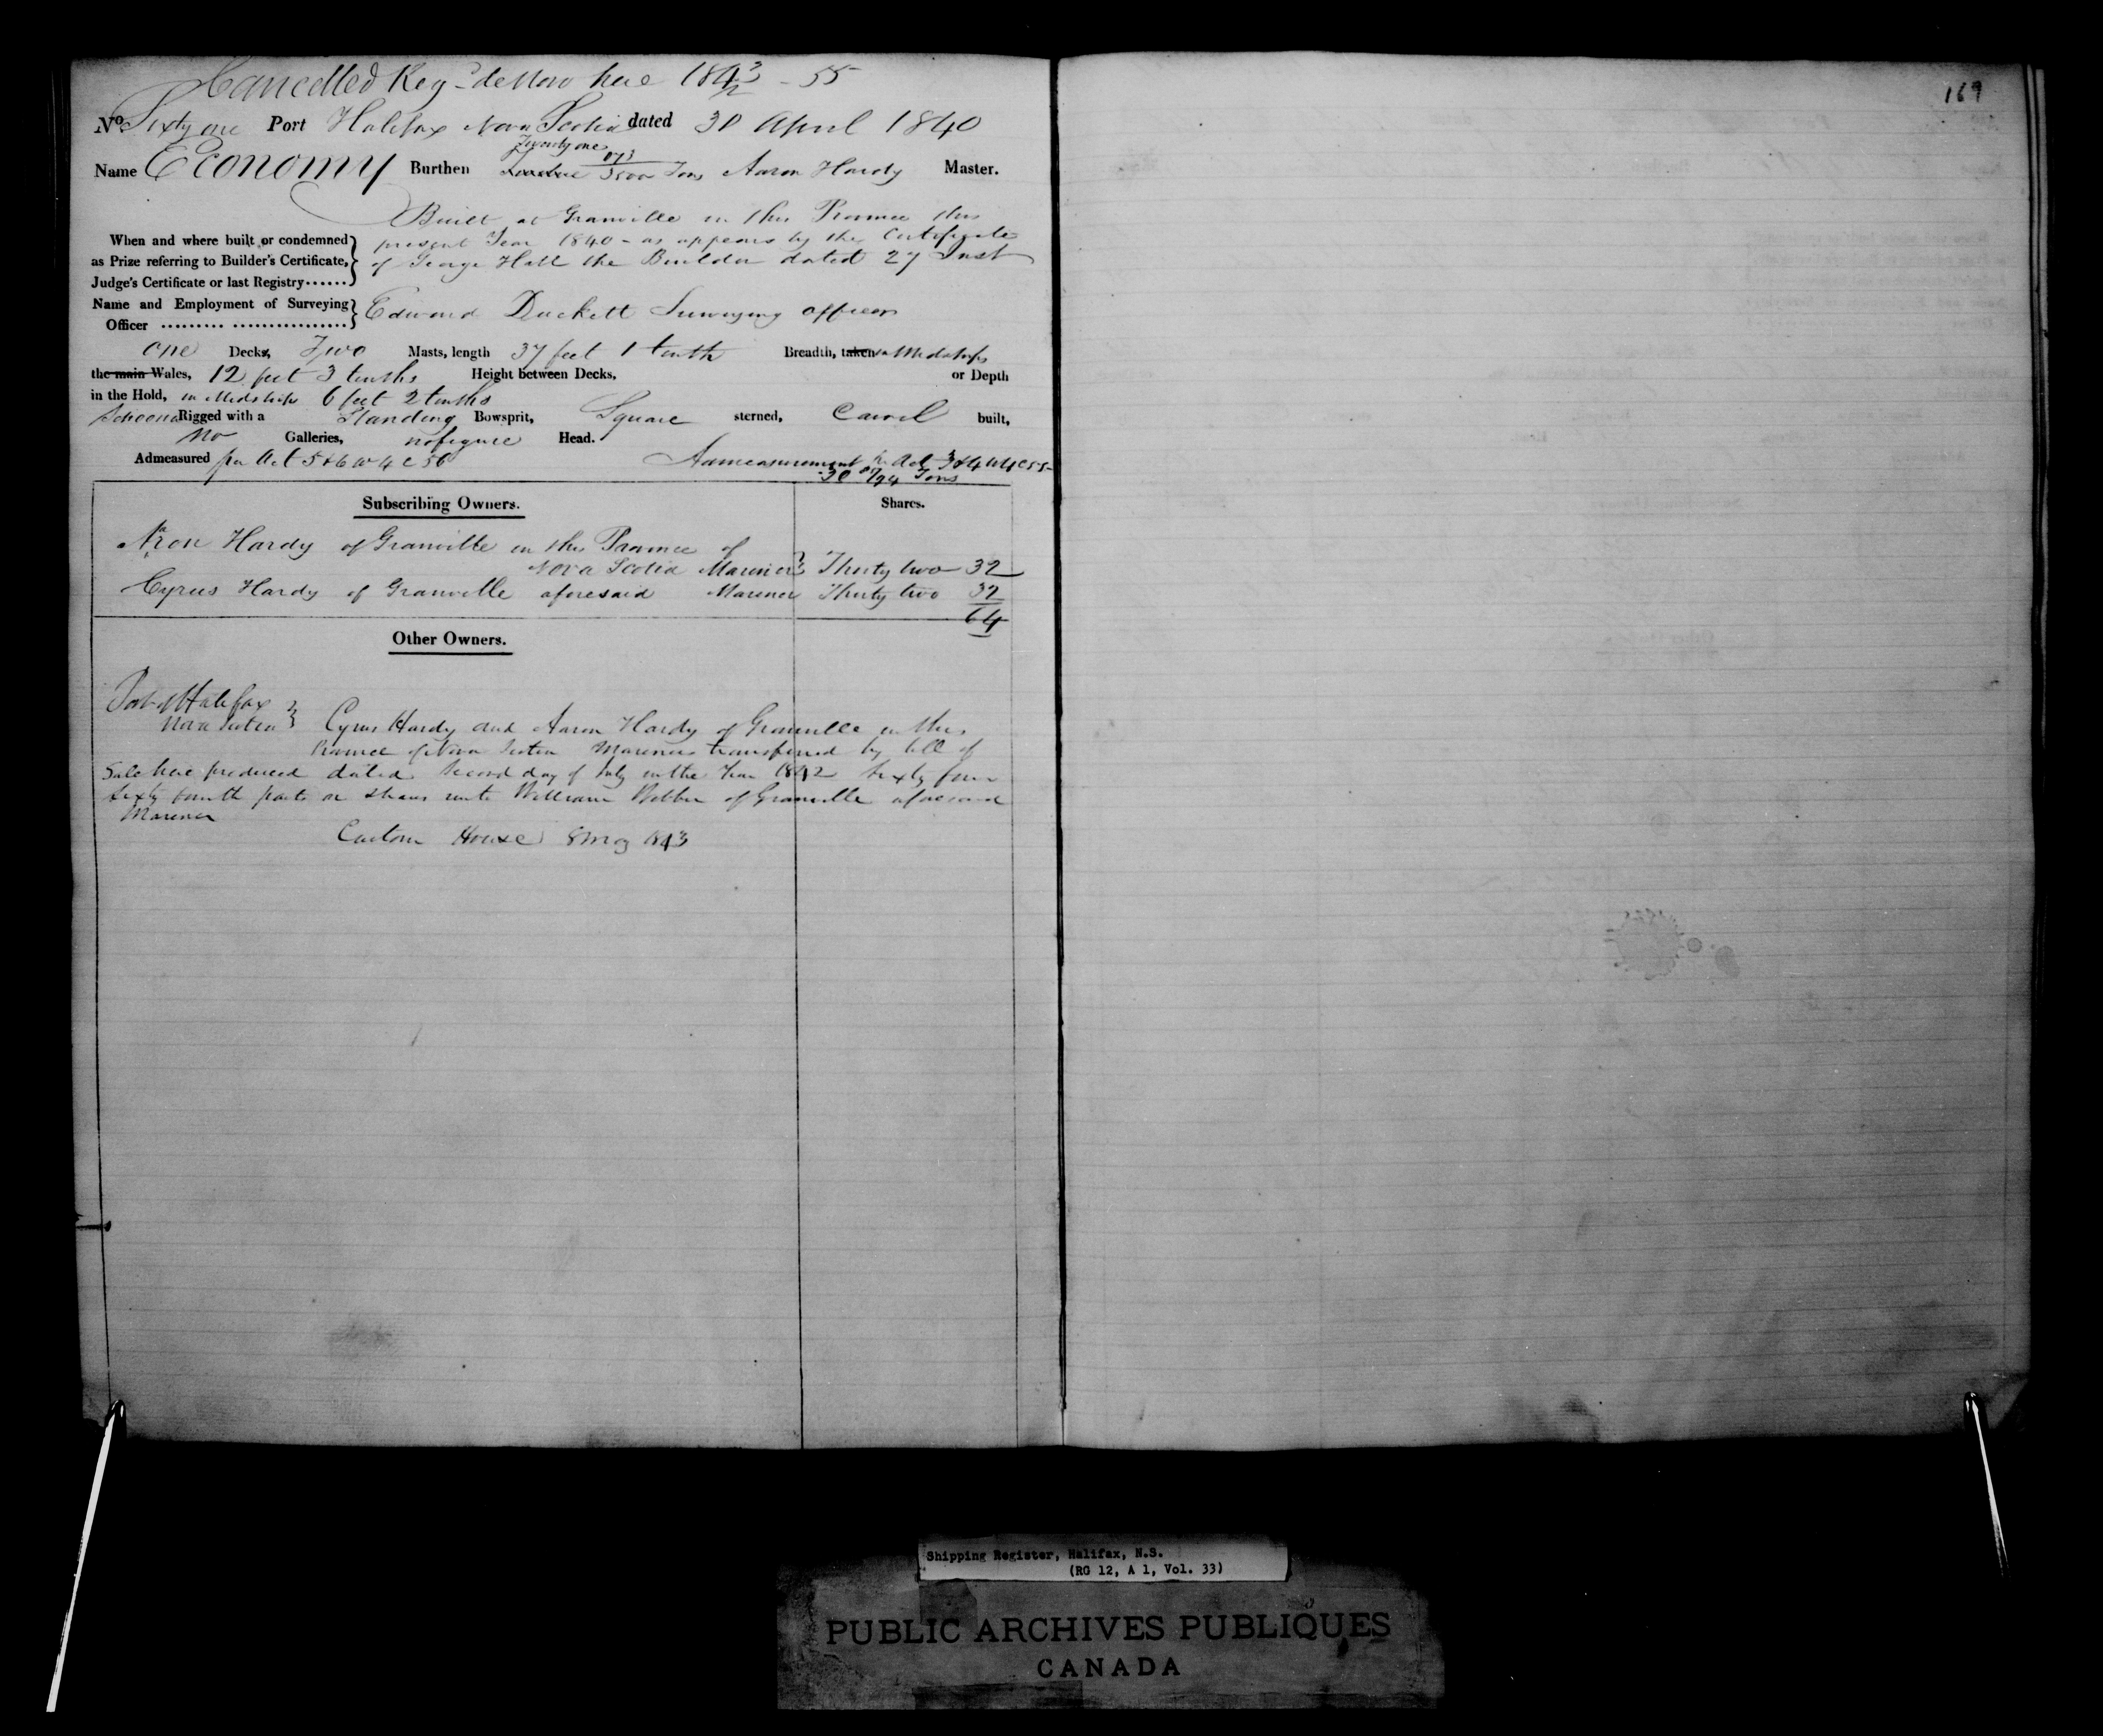 Cancelled Reg de Novo here 1843 - 55
169
No. Sixty one Port Halifax Nova Scotia dated 30 April 1840
Twenty one
Name Economy Burthen 3500 Tons Aaron Hardy Master.
Built at Granville in this Province this
When and where built or condemned present Year 1840 - as appears by the Certificate
as Prize referring to Builder's Certificate, of George Hall the Builder dated 27 Inst
Judge's Certificate or last Registry......
Name and Employment of Surveying Edward Duckett Surveying officer
Officer ......... ................
One Decks, Two Masts, length 37 feet 1 tenth Breadth, taken Midships
the main Wales, 12 feet 3 tenths Height between Decks, or Depth
in the Hold, in Midships 6 feet 2 tenths
Schooner Rigged with a Standing Bowsprit, Square sterned, Carvel built,
No Galleries, no figure Head.
Admeasured per Act 5 & 6 W 4 C 56 Admeasurement pr Act 3 & 4 W 4 C 55
30 /94 Tons
Subscribing Owners. Shares.
Aron Hardy of Granville in this Province of
Nova Scotia Mariner Thirty two 32
Cyrus Hardy of Granville aforesaid Mariner Thirty two 32
64
Other Owners.
Port of Halifax
Nova Scotia Cyrus Hardy and Aaron Hardy of Granville in this
Province of Nova Scotia Mariners transferred by bill of
Sale here produced dated Second day of July in the Year 1842 Sixty four
Sixty fourth parts or Shares unto William of Granville aforesaid
Mariner
Custom House 8 1843
Shipping Register, Halifax, N.S.
(RG 12, A 1, Vol. 33)
PUBLIC ARCHIVES PUBLIQUES
CANADA